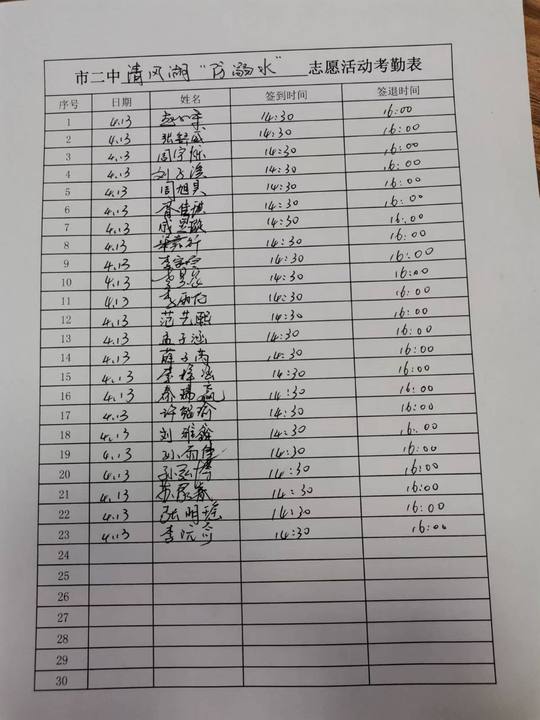 市二中清风湖“防溺水”志愿活动考勤表
序号 日期 姓名 签到时间 签退时间
1 4.13 14:30 16:00
2 4.13 14:30 16:00
3 4.13 周宇 14:30 16:00
4 4.13 刘子溪 14:30 16:00
5 4.13 周旭昊 14:30 16:00
6 4.13 14:30 16:00
7 4.13 14:30 16:00
8 4.13 14:30 16:00
9 4.13 14:30 16:00
10 4.13 14:30 16:00
11 4.13 14:30 16:00
12 4.13 范芸熙 14:30 16:00
13 4.13 孟子涵 14:30 16:00
14 4.13 薛子芮 14:30 16:00
15 4.13 李梓涵 14:30 16:00
16 4.13 秦瑞嬴 14:30 16:00
17 4.13 许铭瑜 14:30 16:00
18 4.13 刘雅鑫 14:30 16:00
19 4.13 孙雨佳 14:30 16:00
20 4.13 孙弘博 14:30 16:00
21 4.13 14:30 16:00
22 4.13 张明瑶 14:30 16:00
23 4.13 李沅奇 14:30 16:00
24
25
26
27
28
29
30